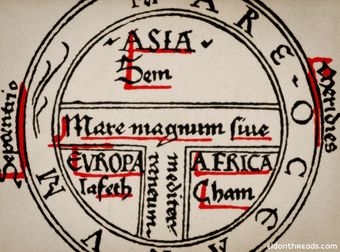 MARE-OCCEA
VM
ASIA
Sem
Septentrio
Meridies
Mare magnum siue
EVROPA
Iafeth
mediter
reneum
AFRICA
Cham
eldonthreads.com